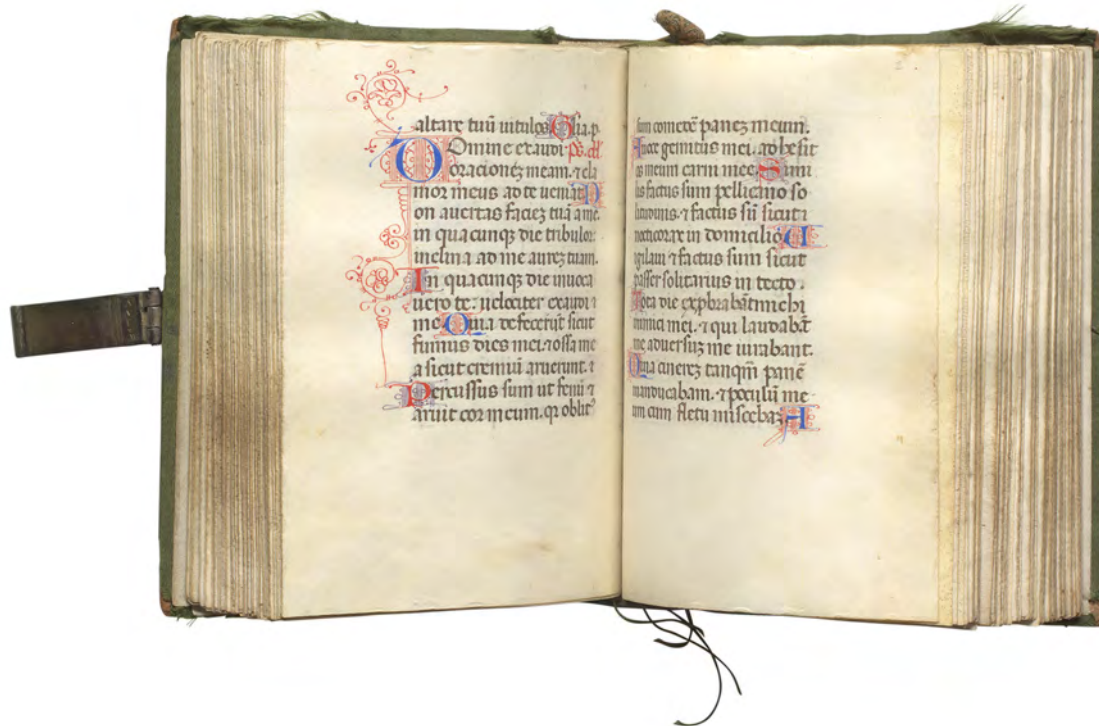 altare tuū uitulos. Glia. p.
Domine exaudi ps. dd.
oracionez meam. ⁊ cla
mor meus ad te ueniat. N
on auertas faciez tuā a me.
in quacunqꝫ die tribulor:
inclina ad me aurez tuam.
In quacunqꝫ die inuoca
uero te: uelociter exaudi ⁊
me. Quia defecerūt sicut
fumus dies mei. ⁊ ossa me
a sicut cremiū aruerunt. ⁊
Percussus sum ut fenū ⁊
aruit cor meum. qꝛ oblitꝰ
sum comedē panez meum.
A uoce gemitus mei. adhesit
os meum carni mee. Simi
lis factus sum pellicano so
litudinis. ⁊ factus sū sicut ⁊
nocticorax in domicilio. U
igilaui ⁊ factus sum sicut
passer solitarius in tecto.
Tota die exp̄brabāt michi
inimici mei. ⁊ qui laudabāt
me aduersuz me iurabant.
Quia cinerez tanqm̄ panē
manducabam. ⁊ poculū me
um cum fletu miscebaz. A